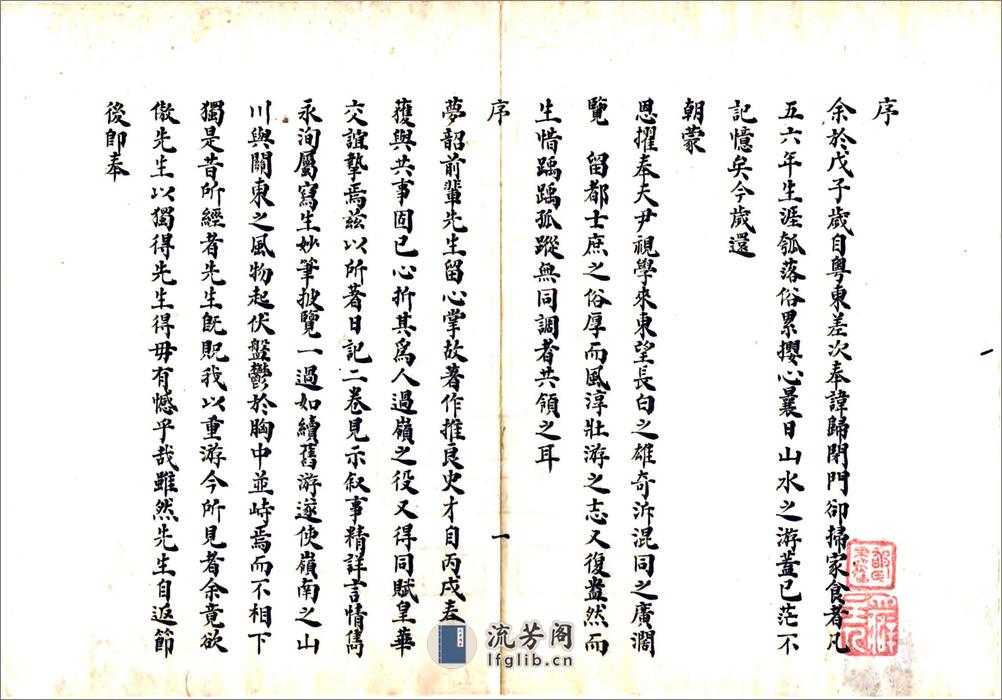 序
余於戊子歲自粵東差次奉諱歸閉門卻掃家食者凡
五六年生涯瓠落俗累攖心曩日山水之游蓋已茫不
記憶矣今歲還
朝蒙
恩擢奉天尹視學來東望長白之雄奇泝混同之廣濶
覽　留都士庶之俗厚而風淳壯游之志又復盎然而
生惜踽踽孤蹤無同調者共領之耳
序　一
夢韶前輩先生留心掌故著作推良史才自丙戌春
獲與共事固已心折其爲人過嶺之役又得同賦皇華
交誼摯焉茲以所著日記二卷見示叙事精詳言情雋
永洵屬寫生妙筆披覽一過如續舊游遂使嶺南之山
川與關東之風物起伏盤鬱於胸中並峙焉而不相下
獨是昔所經者先生旣貺我以重游今所見者余竟欲
傲先生以獨得先生得毋有憾乎哉雖然先生自返節
後卽奉
流芳阁
lfglib.cn